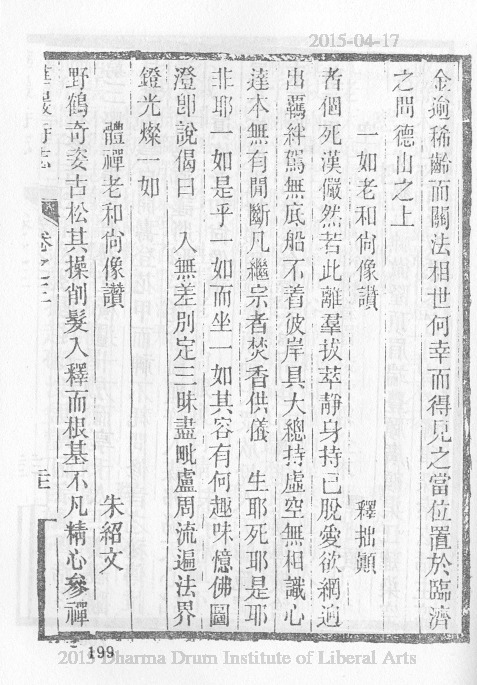 2015-04-17
金逾稀齡而關法相世何幸而得見之當位置於臨濟
之間德山之上
一如老和尙像讚 釋拙顚
者個死漢儼然若此離羣拔萃靜身持己脫愛欲網逈
出羈絆駕無底船不着彼岸具大總持虛空無相識心
達本無有聞斷凡繼宗者焚香供儀 生耶死耶是耶
非耶一如是乎一如而坐一如其容有何趣味憶佛圖
澄卽說偈曰 入無差別定三昧盡毗盧周流遍法界
鐙光燦一如
體禪老和尙像讚 朱紹文
野鶴奇姿古松其操削髮入釋而根基不凡精心參禪
寺志 卷之三
199
2015 Dharma Drum Institute of Liberal Arts